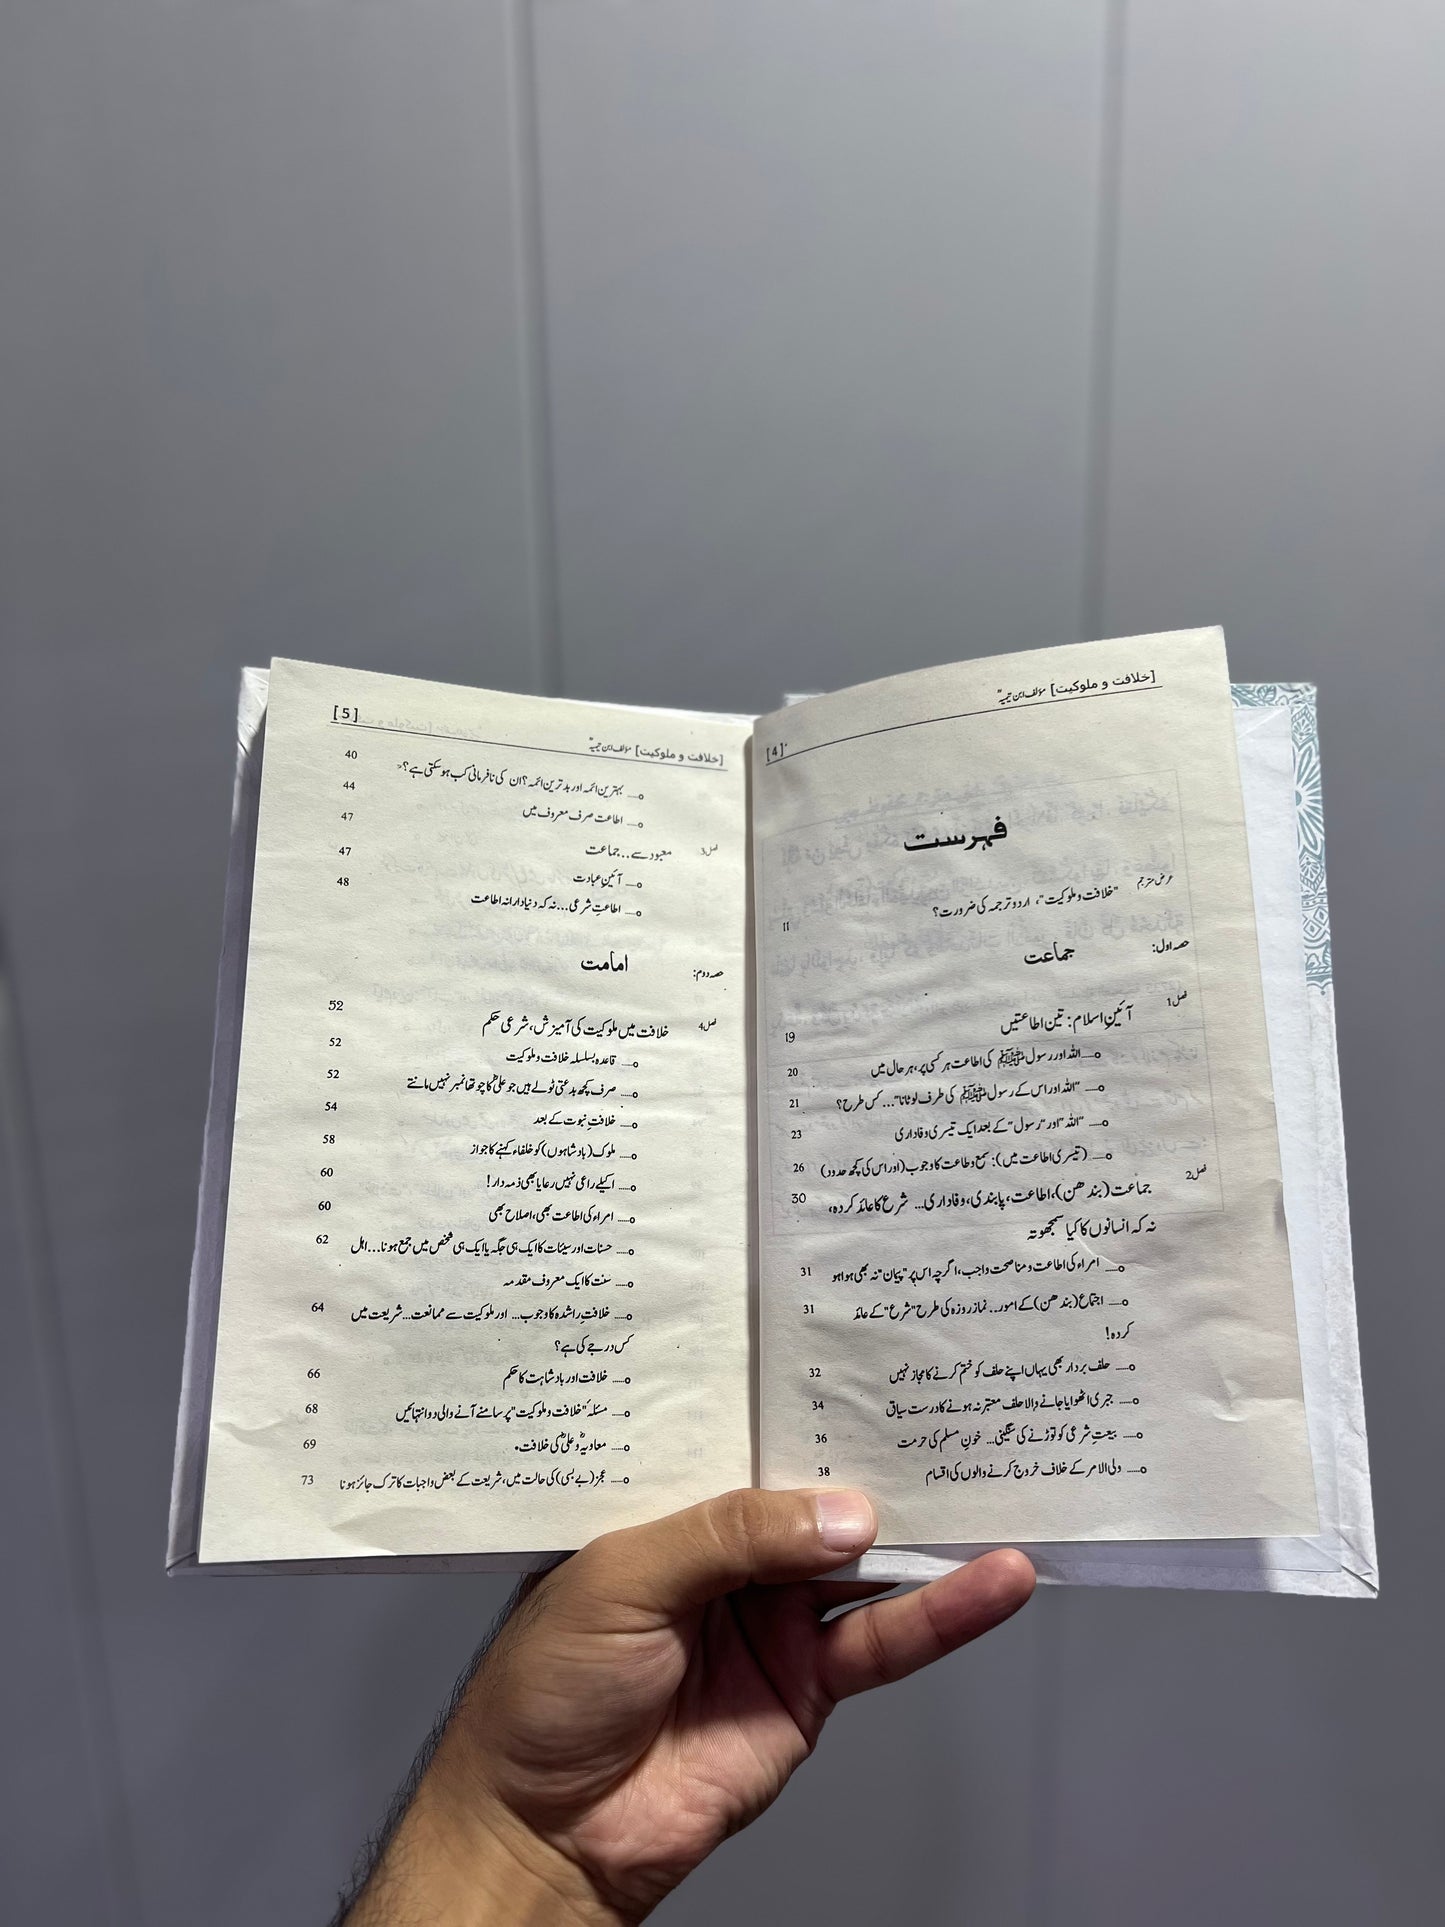 [خلافت و ملوکیت] مؤلف ابن تیمیہؒ [4]
فہرست
عرض مترجم "خلافت و ملوکیت"، اردو ترجمہ کی ضرورت؟ 11
حصہ اول: جماعت
فصل1 آئینِ اسلام: تین اطاعتیں 19
o.... اللہ اور رسول ﷺ کی اطاعت ہر کسی پر، ہر حال میں 20
o.... "اللہ اور اس کے رسول ﷺ کی طرف لوٹانا"... کس طرح؟ 21
o.... "اللہ" اور "رسول" کے بعد ایک تیسری وفاداری 23
o.... (تیسری اطاعت میں): سمع و طاعت کا وجوب (اور اس کی کچھ حدود) 26
فصل2 جماعت (بندھن)، اطاعت، پابندی، وفاداری... شرع کا عائد کردہ، 30
نہ کہ انسانوں کا کیا سمجھوتہ
o.... امراء کی اطاعت و مناصحت واجب، اگرچہ اس پر "پیمان" نہ بھی ہوا ہو 31
o.... اجتماع (بندھن) کے امور... نماز روزہ کی طرح "شرع" کے عائد 31
کردہ!
o.... حلف بردار بھی یہاں اپنے حلف کو ختم کرنے کا مجاز نہیں 32
o.... جبری اٹھوایا جانے والا حلف معتبر نہ ہونے کا درست سیاق 34
o.... بیعتِ شرعی کو توڑنے کی سنگینی... خونِ مسلم کی حرمت 36
o.... ولی الامر کے خلاف خروج کرنے والوں کی اقسام 38
[خلافت و ملوکیت] مؤلف ابن تیمیہؒ [5]
o.... بہترین ائمہ اور بدترین ائمہ؟ ان کی نافرمانی کب ہوسکتی ہے؟ 40
o.... اطاعت صرف معروف میں 44
فصل3 معبود سے... جماعت 47
o.... آئینِ عبادت 47
o.... اطاعتِ شرعی... نہ کہ دنیادارانہ اطاعت 48
حصہ دوم: امامت
فصل4 خلافت میں ملوکیت کی آمیزش، شرعی حکم 52
o.... قاعدہ بسلسلہ خلافت و ملوکیت 52
o.... صرف کچھ بدعتی ٹولے ہیں جو علیؓ کا چوتھا نمبر نہیں مانتے 52
o.... خلافتِ نبوت کے بعد 54
o.... ملوک (بادشاہوں) کو خلفاء کہنے کا جواز 58
o.... اکیلے راعی نہیں رعایا بھی ذمہ دار! 60
o.... امراء کی اطاعت بھی، اصلاح بھی 60
o.... حسنات اور سیئات کا ایک ہی جگہ یا ایک ہی شخص میں جمع ہونا... اہل 62
o.... سنت کا ایک معروف مقدمہ
o.... خلافتِ راشدہ کا وجوب... اور ملوکیت سے ممانعت... شریعت میں 64
کس درجے کی ہے؟
o.... خلافت اور بادشاہت کا حکم 66
o.... مسئلہ "خلافت و ملوکیت" پر سامنے آنے والی دو انتہائیں 68
o.... معاویہؓ و علیؓ کی خلافت۔ 69
o.... عجز (بے بسی) کی حالت میں، شریعت کے بعض واجبات کا ترک جائز ہونا 73